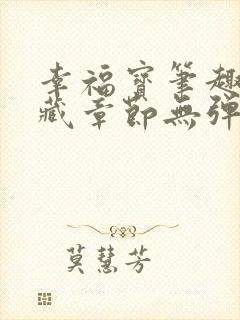 幸福寶筆趣
藏章節無彈
莫慧芳